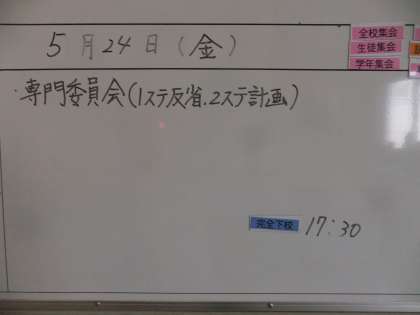 5月24日(金)
全校集会
生徒集会
学年集会
・専門委員会(1ステ反省.2ステ計画)
完全下校 17:30